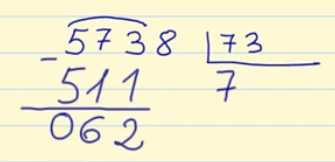 - 5738 |73
511 7
062